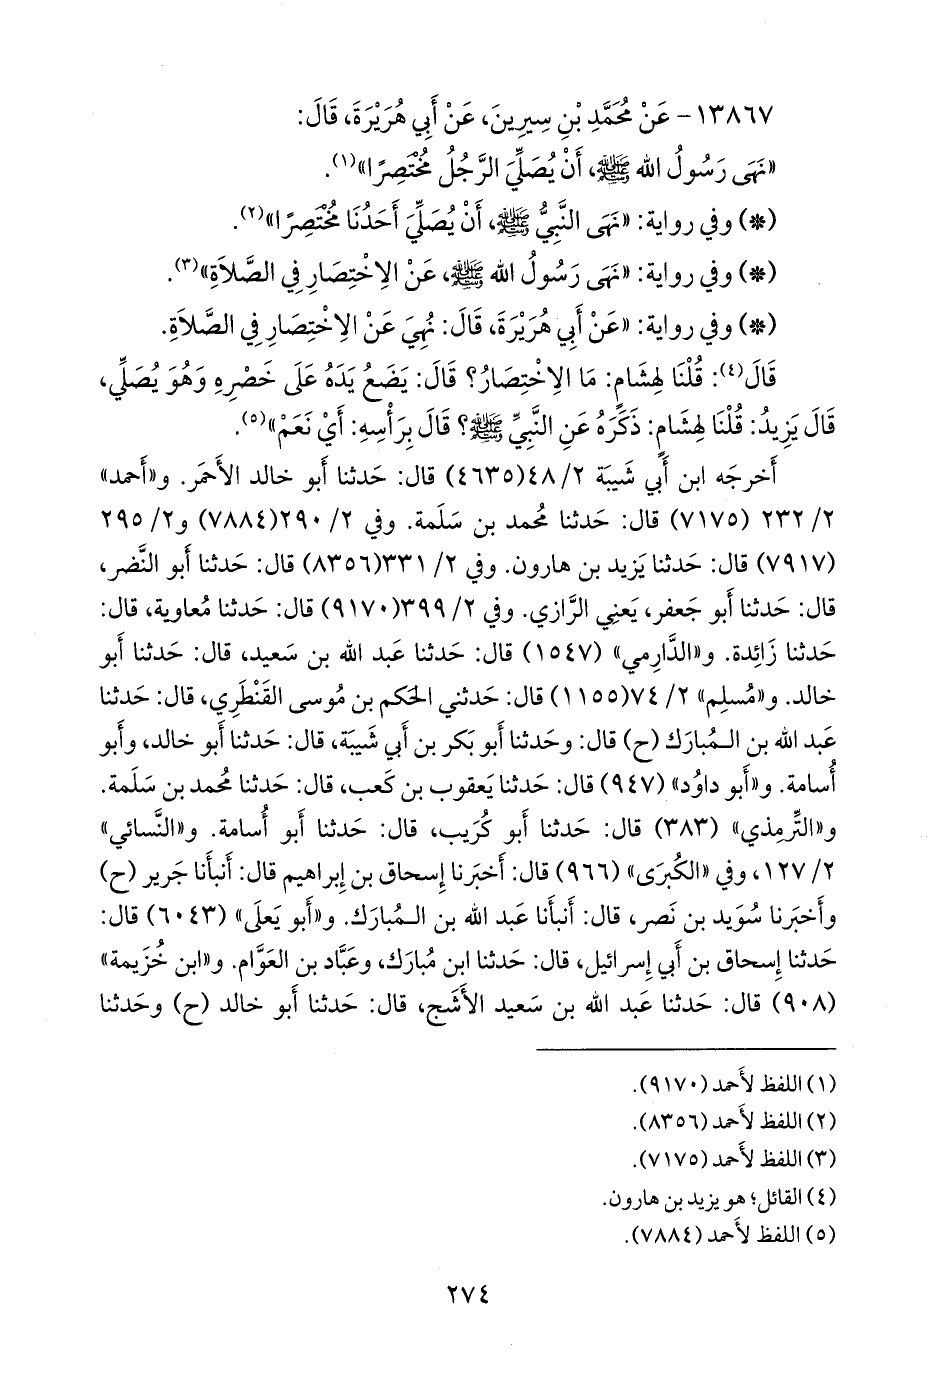 ١٣٨٦٧ - عَنْ مُحَمَّدِ بْنِ سِيرِينَ، عَنْ أَبِي هُرَيْرَةَ، قَالَ:
«نَهَى رَسُولُ الله ﷺ، أَنْ يُصَلِّيَ الرَّجُلُ مُخْتَصِرًا»(١).
(*) وفي رواية: «نَهَى النَّبِيُّ ﷺ، أَنْ يُصَلِّيَ أَحَدُنَا مُخْتَصِرًا»(٢).
(*) وفي رواية: «نَهَى رَسُولُ الله ﷺ، عَنْ الِاخْتِصَارِ فِي الصَّلَاةِ»(٣).
(*) وفي رواية: «عَنْ أَبِي هُرَيْرَةَ، قَالَ: نُهِيَ عَنْ الِاخْتِصَارِ فِي الصَّلَاةِ.
قَالَ(٤): قُلْنَا لِهِشَامٍ: مَا الِاخْتِصَارُ؟ قَالَ: يَضَعُ يَدَهُ عَلَى خَصْرِهِ وَهُوَ يُصَلِّي،
قَالَ يَزِيدُ: قُلْنَا لِهِشَامٍ: ذَكَرَهُ عَنِ النَّبِيِّ ﷺ؟ قَالَ بِرَأْسِهِ: أَيْ نَعَمْ»(٥).
أَخرجَه ابن أَبي شَيبَة ٢/ ٤٨(٤٦٣٥) قال: حَدثنا أَبو خالد الأَحمَر. و«أَحمد»
٢/ ٢٣٢ (٧١٧٥) قال: حَدثنا مُحمد بن سَلَمة. وفي ٢/ ٢٩٠(٧٨٨٤) و٢/ ٢٩٥
(٧٩١٧) قال: حَدثنا يَزيد بن هارون. وفي ٢/ ٣٣١(٨٣٥٦) قال: حَدثنا أَبو النَّضر،
قال: حَدثنا أَبو جَعفر، يَعنِي الرَّازي. وفي ٢/ ٣٩٩(٩١٧٠) قال: حَدثنا مُعاوية، قال:
حَدثنا زَائِدة. و«الدَّارِمي» (١٥٤٧) قال: حَدثنا عَبد الله بن سَعيد، قال: حَدثنا أَبو
خالد. و«مُسلِم» ٢/ ٧٤(١١٥٥) قال: حَدثني الحَكم بن مُوسى القَنْطَري، قال: حَدثنا
عَبد الله بن الـمُبارَك (ح) قال: وحَدثنا أَبو بَكر بن أَبي شَيبَة، قال: حَدثنا أَبو خالد، وأَبو
أُسامة. و«أَبو داوُد» (٩٤٧) قال: حَدثنا يَعقوب بن كَعب، قال: حَدثنا مُحمد بن سَلَمة.
و«التِّرمِذي» (٣٨٣) قال: حَدثنا أَبو كُرَيب، قال: حَدثنا أَبو أُسامة. و«النَّسائي»
٢/ ١٢٧، وفي «الكُبرَى» (٩٦٦) قال: أَخبَرنا إِسحاق بن إِبراهيم قال: أَنبأَنا جَرير (ح)
وأَخبَرنا سُوَيد بن نَصر، قال: أَنبأَنا عَبد الله بن الـمُبارَك. و«أَبو يَعلَى» (٦٠٤٣) قال:
حَدثنا إِسحاق بن أَبي إِسرائيل، قال: حَدثنا ابن مُبارَك، وعَبَّاد بن العَوَّام. و«ابن خُزَيمة»
(٩٠٨) قال: حَدثنا عَبد الله بن سَعيد الأَشَج، قال: حَدثنا أَبو خالد (ح) وحَدثنا
(١) اللفظ لأَحمد (٩١٧٠).
(٢) اللفظ لأَحمد (٨٣٥٦).
(٣) اللفظ لأَحمد (٧١٧٥).
(٤) القائل؛ هو يزيد بن هارون.
(٥) اللفظ لأَحمد (٧٨٨٤).
٢٧٤